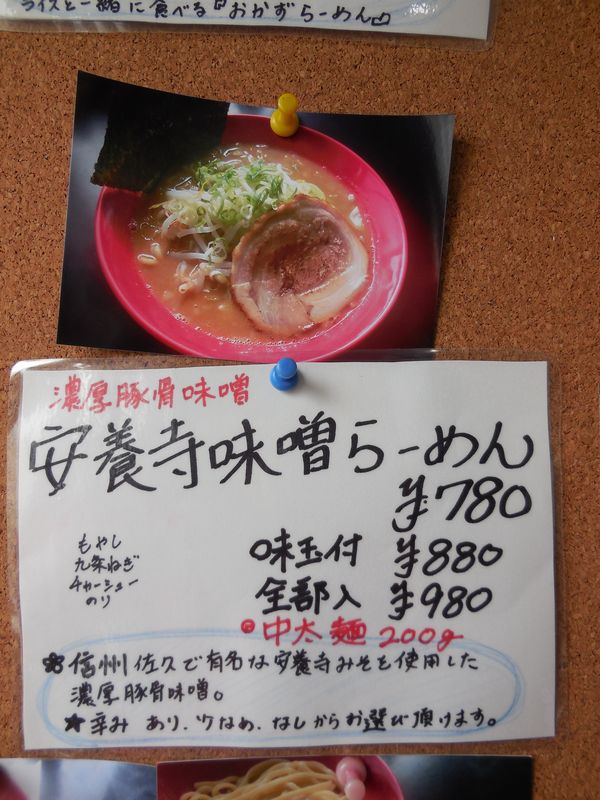 ライスと一緒に食べる『おかずらーめん』
濃厚豚骨味噌
安養寺味噌らーめん
¥780
もやし
九条ねぎ
チャーシュー
のり
味玉付 ¥880
全部入 ¥980
中太麺 200g
信州佐久で有名な安養寺みそを使用した
濃厚豚骨味噌。
★辛み あり、少なめ、なしからお選び頂けます。